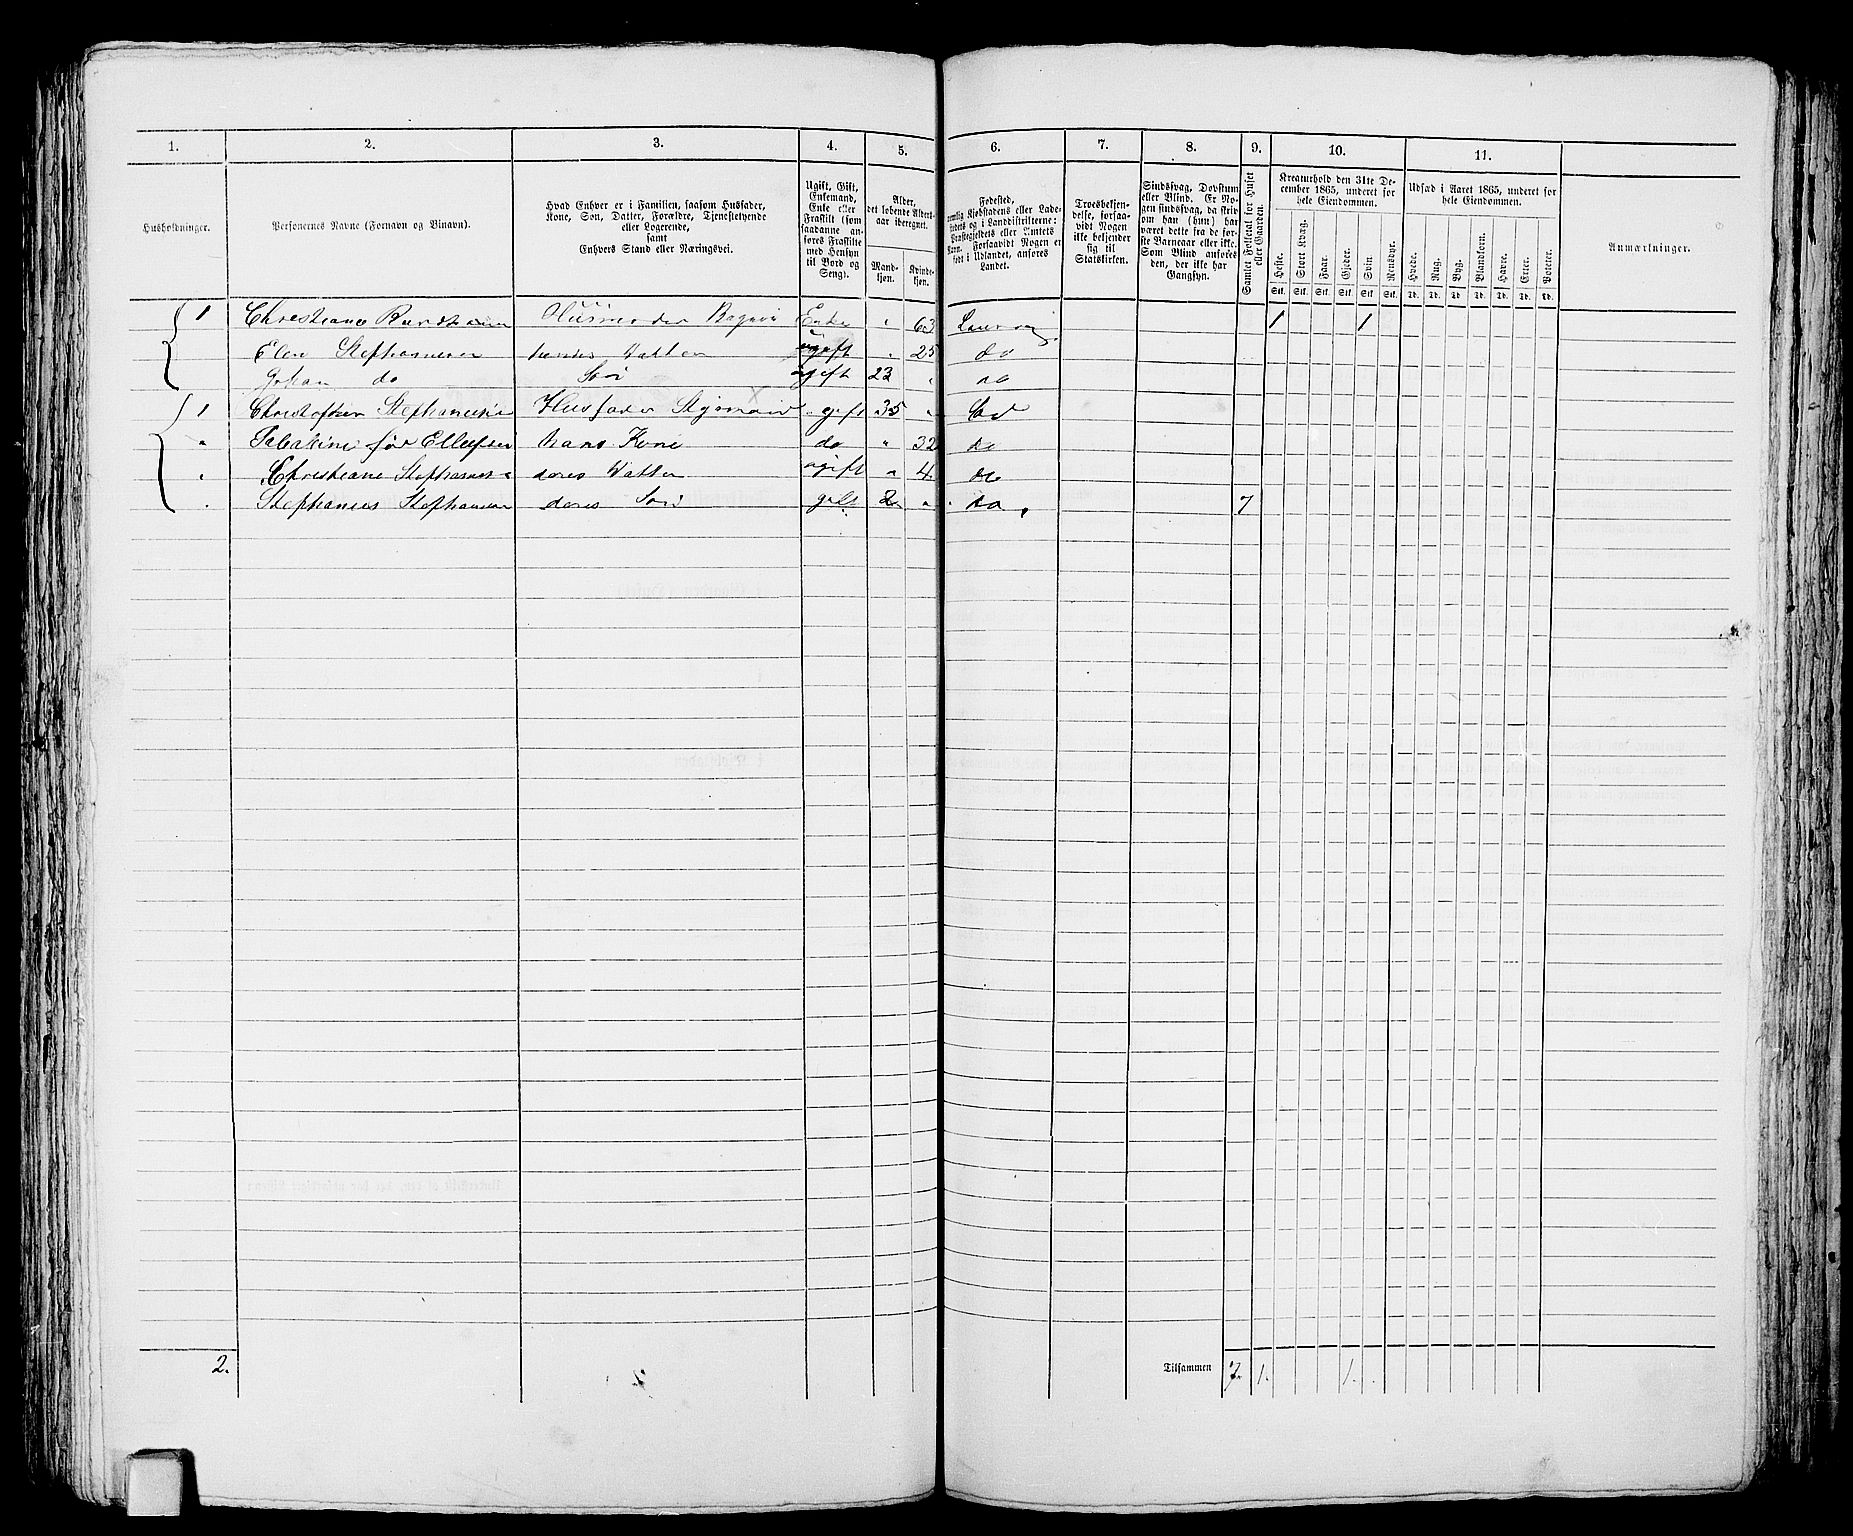 1. 2. 3. 4. 5. 6. 7. 8. 9. 10. 11.
Husholdninger.
Personernes Navne (Fornavn og Tilnavn).
Hvad Enhver er i Familien, saasom Husfader, Kone, Søn, Datter, Forældre, Tjenestetyende eller Logerende, samt Enhvers Stand eller Næringsvei.
Ugift, Gift, Enkemand, Enke eller Fraskilt (som saadanne anføres Fraskilte med Hensyn til Bord og Seng).
Alder, det løbende Aldersaar iberegnet.
Mandkjøn. Kvindekjøn.
Fødested, nemlig Kjøbstadens eller Ladestedets og i Landdistrikterne: Præstegjeldets eller Amtets Navn. Forsaavidt Nogen er født i Udlandet, anføres Landet.
Troesbekjendelse, forsaavidt Nogen ikke bekjender sig til Statskirken.
Sindssvag, Døvstum eller Blind. Er Nogen sindssvag, da skrives om han (hun) har været dette fra de første Barneaar eller ikke. Som Blind anføres den, der ikke har Gangsyn.
Samlet Folketal for Huset eller Gaarden.
Kreaturhold den 31te December 1865, underet for hele Eiendommen.
Heste. Stort Kvæg. Faar. Gjeder. Svin. Rensdyr.
Stk. Stk. Stk. Stk. Stk. Stk.
Udsæd i Aaret 1865, underet for hele Eiendommen.
Hvede. Rug. Byg. Blandkorn. Havre. Erter. Poteter.
Td. Td. Td. Td. Td. Td. Td.
Anmærkninger.
1 Christiane Enke " 63 Laurvig 1 1
Elen Stephansen hendes Datter ugift " 25 do
Johan do Søn ugift 23 " do
1 Christopher Stephansen Husfader Styrmand gift 35 "
" før Ellefsen hans Kone do " 32 do
" Christiane Stephansen deres Datter ugift " 4 do
" Stephanus Stephansen deres Søn 2 " do 7
2. Tilsammen 7. 1. 1.